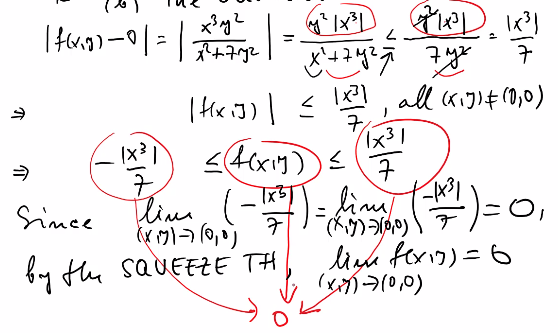 |f(x,y)-0| = |x³y²/(x²+7y²)| = y²|x³|/(x²+7y²) ≤ y²|x³|/(7y²) = |x³|/7
⇒ |f(x,y)| ≤ |x³|/7, all (x,y)≠(0,0)
⇒ -|x³|/7 ≤ f(x,y) ≤ |x³|/7
Since lim (x,y)→(0,0) (-|x³|/7) = lim (x,y)→(0,0) (-|x³|/7) = 0,
by the SQUEEZE TH, lim (x,y)→(0,0) f(x,y) = 0
0